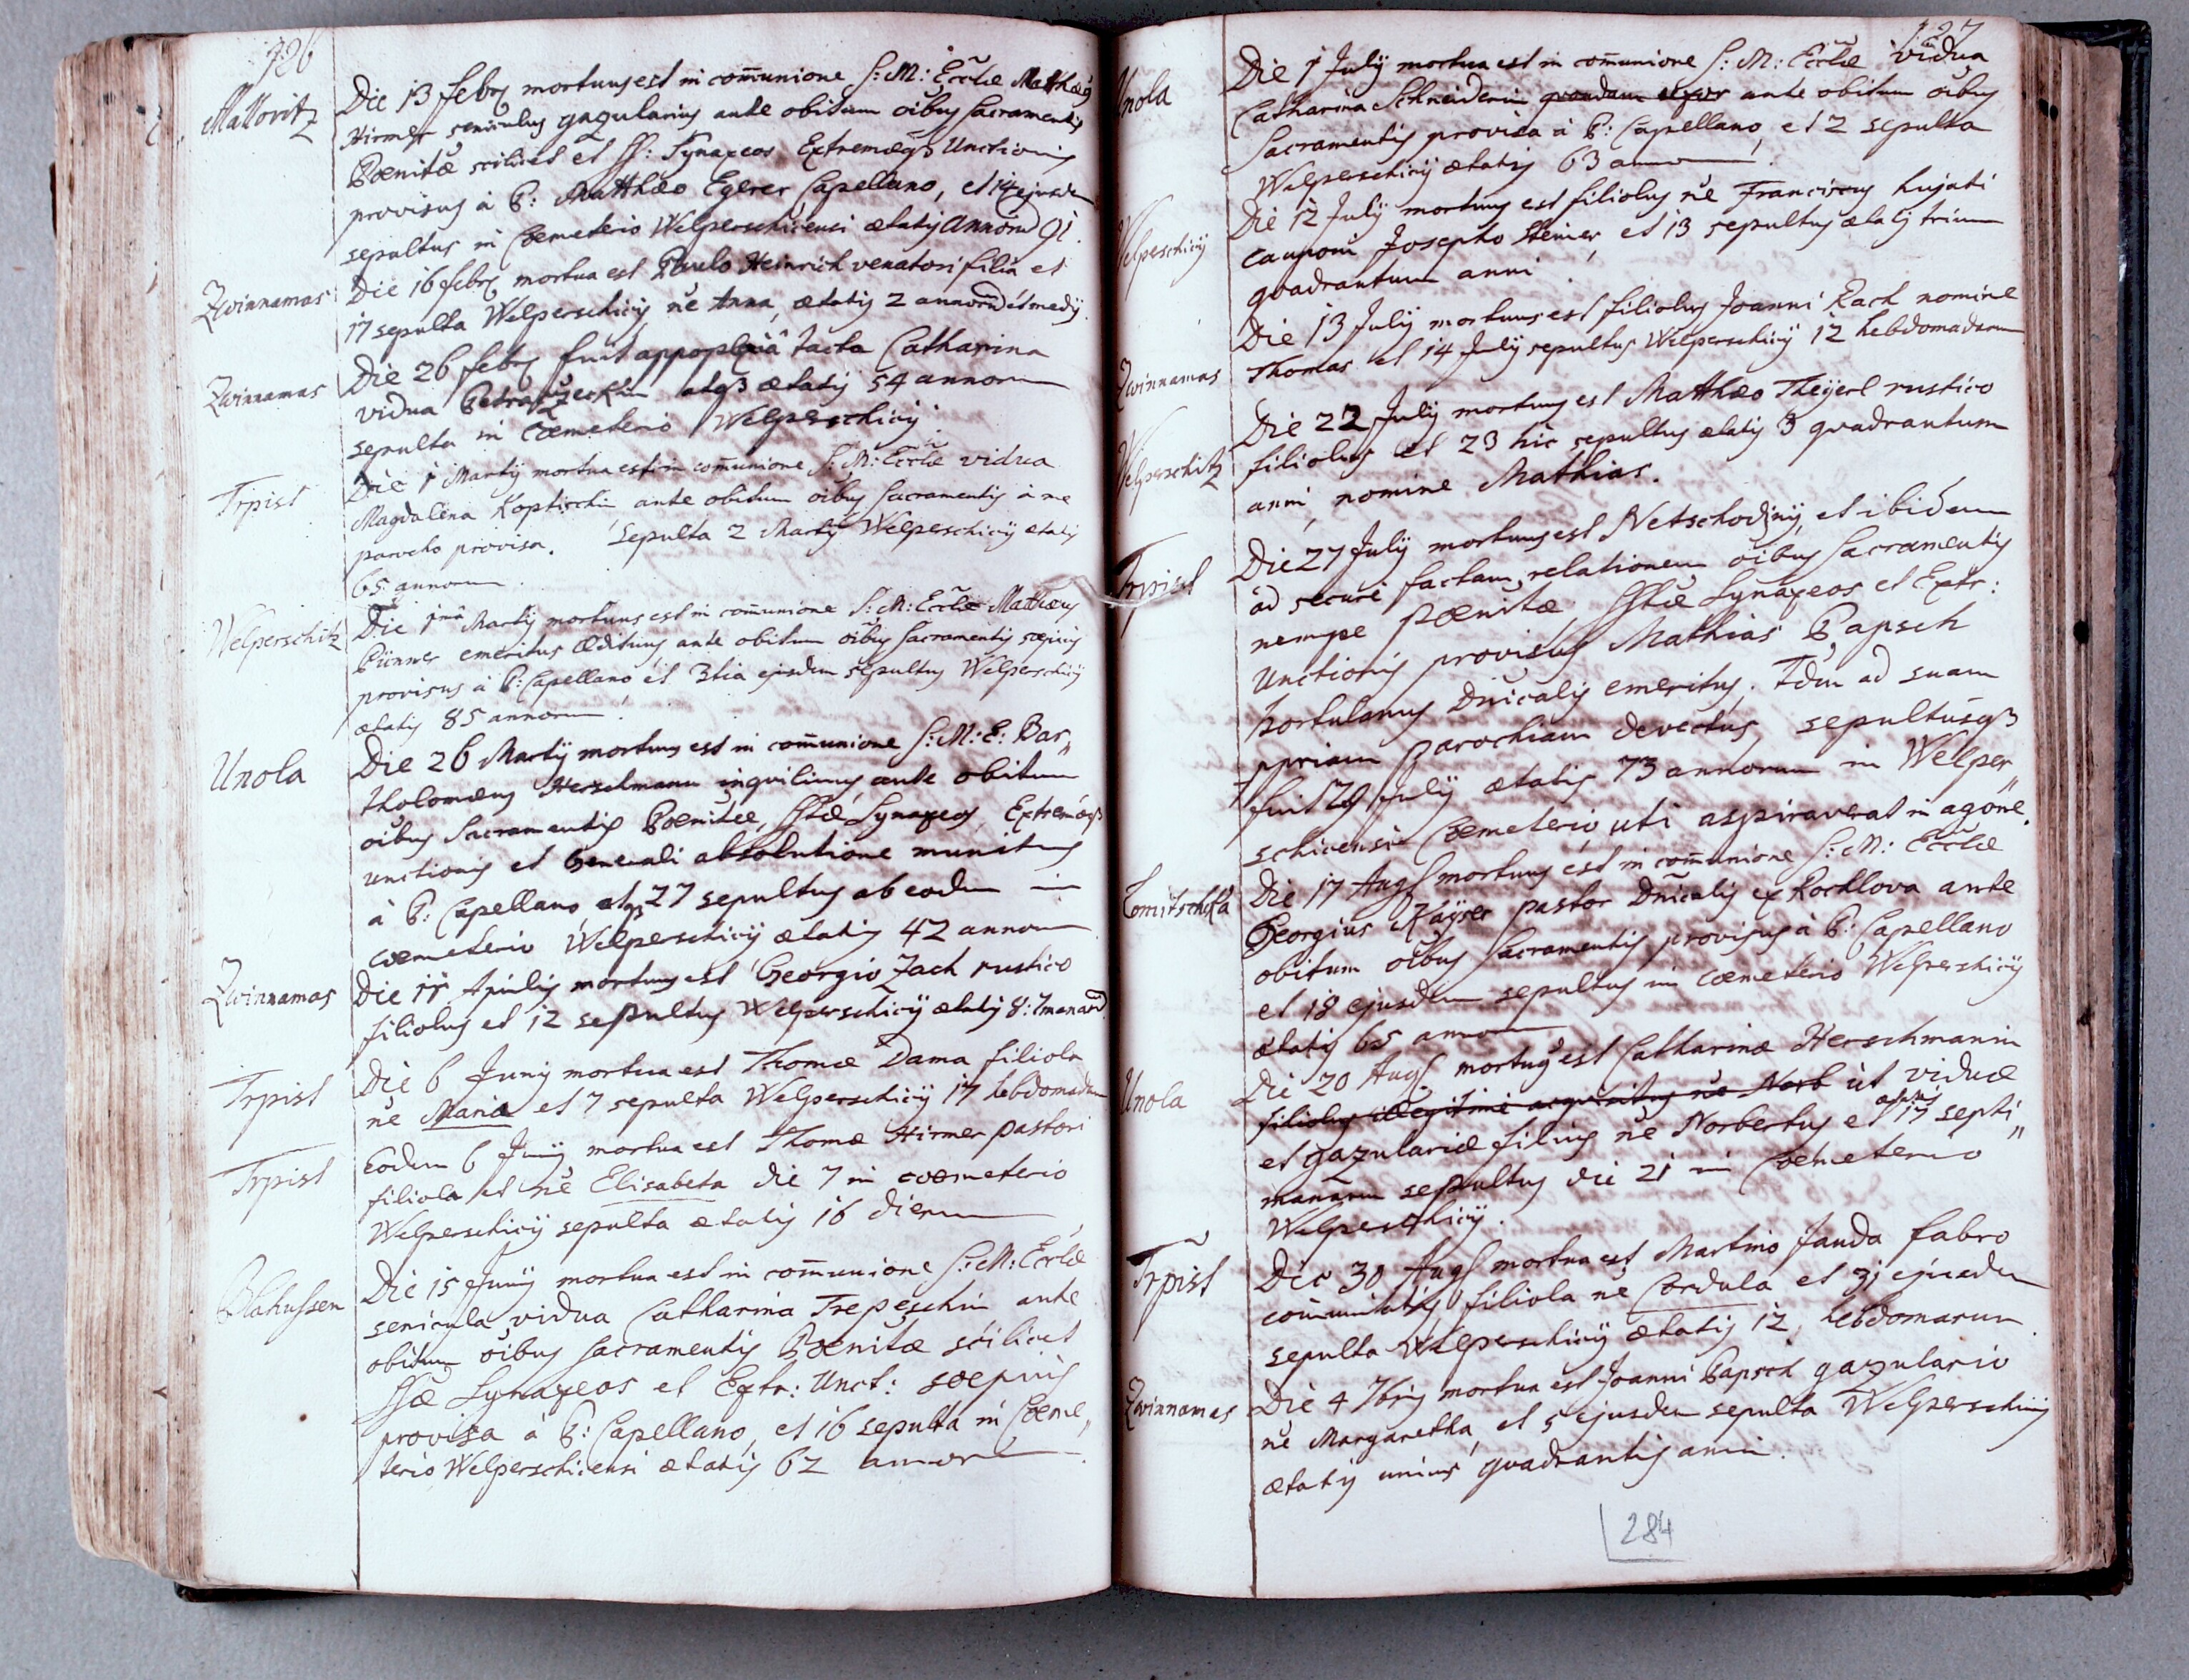 126
Mallovitz
Die 13 febrs mortuus est in com̄unione S: M: Eccł̃æ Matthæus
Hirmer seniculus gazularius ante obitum oĩbus Sacramentis
Pœnitæ scilicet et SS: Synaxeos Extremæq3 Unctionis
provisus à P: Matthæo Egerer Capellano, et 14 ejusdem
sepultus in Cœmeterio Welperschicensi ætatis Annorū 91.
Zwinnamas
Die 16 febrs mortua est Paulo Heinrich venatori filia et
17 sepulta Welperschicij nĕ Anna, ætatis 2 annorū et medij.
Zwinnamas
Die 26 febrs fuit appoplexiâ tacta Catharina
vidua atq3 ætatis 54 annorum
sepulta in Cœmeterio Welperschicij.
Trpist
Die 1 Martij mortua est in com̄unione S: M: Eccł̃æ vidua
Magdalena Koptischin ante obitum oĩbus Sacramentis à me
parocho provisa. Sepulta 2 Martij Welperschicij ætatis
65 annorum.
Welperschitz
Die 1mâ Martij mortuus est in com̄unione S: M: Eccł̃æ Mathæus
Pünner emeritus Ædituus ante obitum oĩbus Sacramentis sæpius
provisus à P: Capellano et 3tia ejusdem sepultus Welperschicij
ætatis 85 annorum.
Unola
Die 26 Martij mortuus est in com̄unione S: M: E: Bar„
tholomæus Herschmann inqvilinus, ante obitum
oĩbus Sacramentis Pœnitæ, SStæ Synaxeos, Extremæq3
unctionis et Generali absolutione munitus
à P: Capellano, atq3 27 sepultus ab eodem in
cœmeterio Welperschicij ætatis 42 annorum
Zwinnamas
Die 11 Aprilis mortuus est Georgio Zach rustico
filiolus et 12 sepultus Welperschicij ætatis 8: 7manarū.
Trpist
Die 6 Junij mortua est Thomæ Dama filiola
nĕ Maria et 7 sepulta Welperschicij 17 hebdomadum
Trpist
Eodem 6 Junij mortua est Thomæ Hirmer pastori
filiola et nĕ Elisabeta die 7 in cœmeterio
Welperschicij sepulta ætatis 16 dierum
Blahussen
Die 15 Junij mortua est in com̄unione S: M: Eccł̃æ
senicula vidua Catharina Trepeschin ante
obitum oĩbus Sacramentis Pœnitæ scilicet
SSæ Synaxeos et Extr: Unct: sæpius
provisa à P: Capellano, et 16 sepulta in Cœme„
terio Welperschicensi ætatis 62 annorum
127
Unola
Die 1 Julij mortua est in com̄unione S: M: Eccł̃æ vidua
Catharina Schneiderin ante obitum oĩbus
Sacramentis provisa à P: Capellano, et 2 sepulta
Welperschicij ætatis 63 annorum.
Welperschicij
Die 12 Julij mortuus est filiolus nĕ Franciscus hujati
cauponi Josepho Steiner, et 13 sepultus ætatis trium
qvadrantum anni.
Zwinnamas
Die 13 Julij mortuus est filiolus Joanni Rach nomine
Thomas et 14 Julij sepultus Welperschicij 12 hebdomadarum
Welperschitz
Die 22 Julij mortuus est Matthæo Theyerl rustico
filiolus et 23 hic sepultus ætatis 3 qvadrantum
anni, nomine Mathias.
Trpist
Die 27 Julij mortuus est Netschodinij, et ibidem
ad securè factam relationem oĩbus Sacramentis
nempe Pœnitæ, SStæ Synaxeos et Extr:
Unctionis provisus Mathias Papsch
hortulanus Dnĩcalis emeritus. Tdm ad suam
ppriam parochiam devectus, sepultusq3
fuit 29 Julij ætatis 73 annorum in Welper„
schicensi Cœmeterio, uti aspiraverat in agone.
Lomitschka
Die 17 Augs mortuus est in com̄unione S: M: Eccł̃æ
Georgius Kaÿser pastor Dnĩcalis ex Rocklova ante
obitum oĩbus Sacramentis provisus à P: Capellano
et 18 ejusdem sepultus in cœmeterio Welperschicij
ætatis 65 annorum
Unola
Die 20 Augs mortuus est Catharinæ Herschmannin
filiolus illegitimè acquisitus nĕ Norb ut viduæ
et gazulariæ filius nĕ Norbertus et ætatis 17 septi„
manarum sepultus die 21 in Cœmeterio
Welperschicij.
Trpist
Die 30 Augs mortua est Martino Janda fabro
com̄unitatis filiola nĕ Cordula et 31 ejusdem
sepulta Welperschicij ætatis 12 hebdomarum.
Zwinnamas
Die 4 7bris mortua est Joanni Papsch gazulario
nĕ Margaretha, et 5 ejusdem sepulta Welperschicij
ætatis unius qvadrantis anni.
284